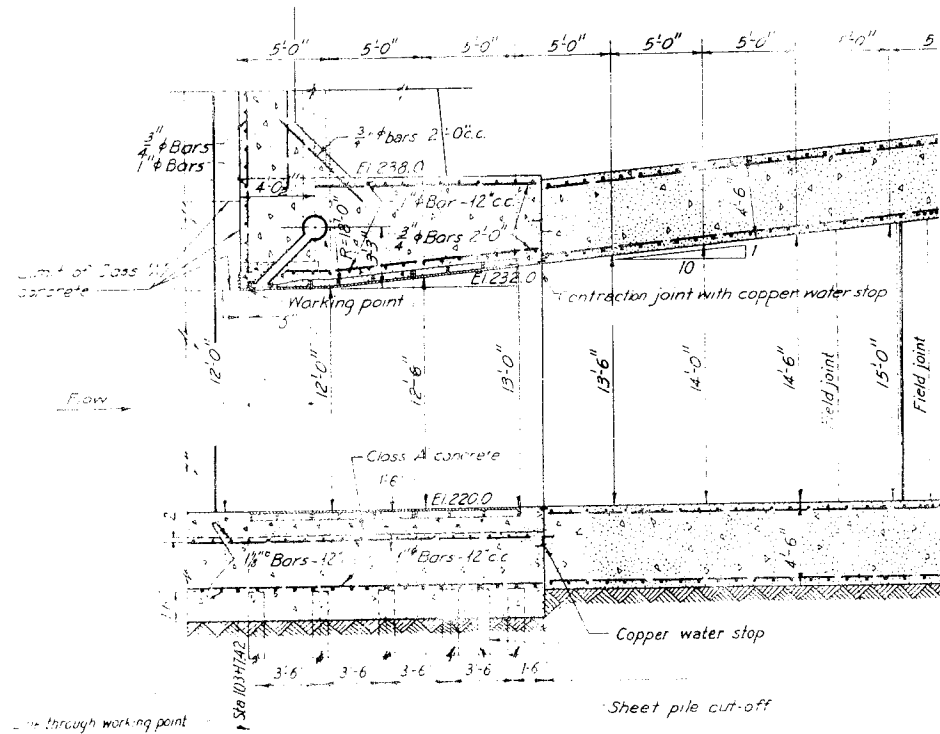 5'-0" 5'-0" 5'-0" 5'-0" 5'-0" 5'-0" 5'-0" 5
3/4" ϕ bars 2'-0" c.c.
3/4" ϕ Bars
1" ϕ Bars
El. 238.0
1" ϕ Bar - 12" c.c.
R=18'-0"
3'-3"
3/4" ϕ Bars 2'-0"
4'-6"
El 232.0
10
1
Limit of Class
concrete
Working point
Contraction joint with copper water stop
5"
12'-0"
12'-0"
12'-6"
13'-0"
13'-6"
14'-0"
14'-6"
Field joint
15'-0"
Field joint
Flow
Class A concrete
El. 220.0
1 1/8" ϕ Bars - 12"
1" ϕ Bars - 12" c.c.
4'-6"
Copper water stop
3'-6 3'-6 3'-6 3'-6 1-6
Sta 103+17.42
Sheet pile cut-off
through working point